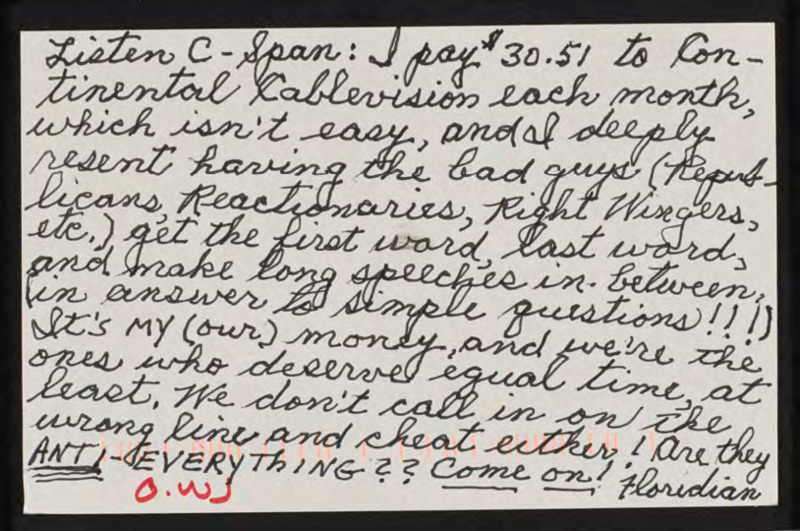 Listen C-Span: I pay $30.51 to Con-
tinental Cablevision each month,
which isn't easy, and I deeply
resent having the bad guys (Repub-
licans, Reactionaries, Right Wingers,
etc.) get the first word, last word,
and make long speeches in-between,
(in answer to simple questions!!!)
It's MY (our) money, and we're the
ones who deserve equal time, at
least. We don't call in on the
wrong line and cheat either! Are they
ANTI-EVERYTHING?? Come on! Floridian
O.W.